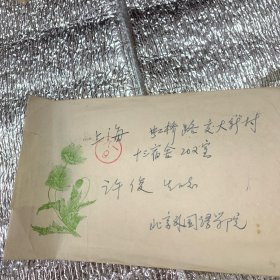 上海 虹桥路交大新村
十三宿舍202室
许俊 先生
北京外国语学院